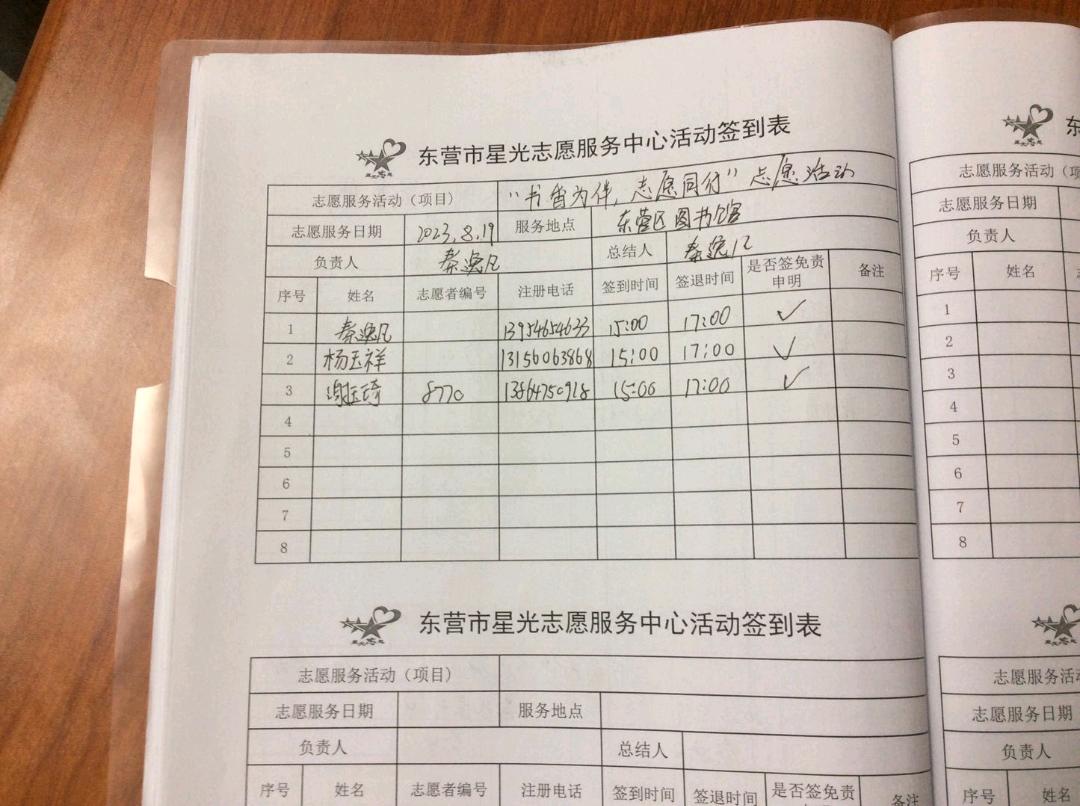 东营市星光志愿服务中心活动签到表
志愿服务活动（项目） “书香为伴，志愿同行”志愿活动
志愿服务日期 2023.8.19 服务地点 东营区图书馆
负责人 秦逸凡 总结人 秦逸凡
序号 姓名 志愿者编号 注册电话 签到时间 签退时间 是否签免责申明 备注
1 秦逸凡 13954654633 15:00 17:00 ✓
2 杨玉祥 13156063868 15:00 17:00 ✓
3 8770 13564750918 15:00 17:00 ✓
4
5
6
7
8
东营市星光志愿服务中心活动签到表
志愿服务活动（项目）
志愿服务日期 服务地点
负责人 总结人
序号 姓名 志愿者编号 注册电话 签到时间 签退时间 是否签免责 备注
东
志愿服务活动（项
志愿服务日期
负责人
序号 姓名
1
2
3
4
5
6
7
8
志愿服务活动
志愿服务日期
负责人
序号 姓名